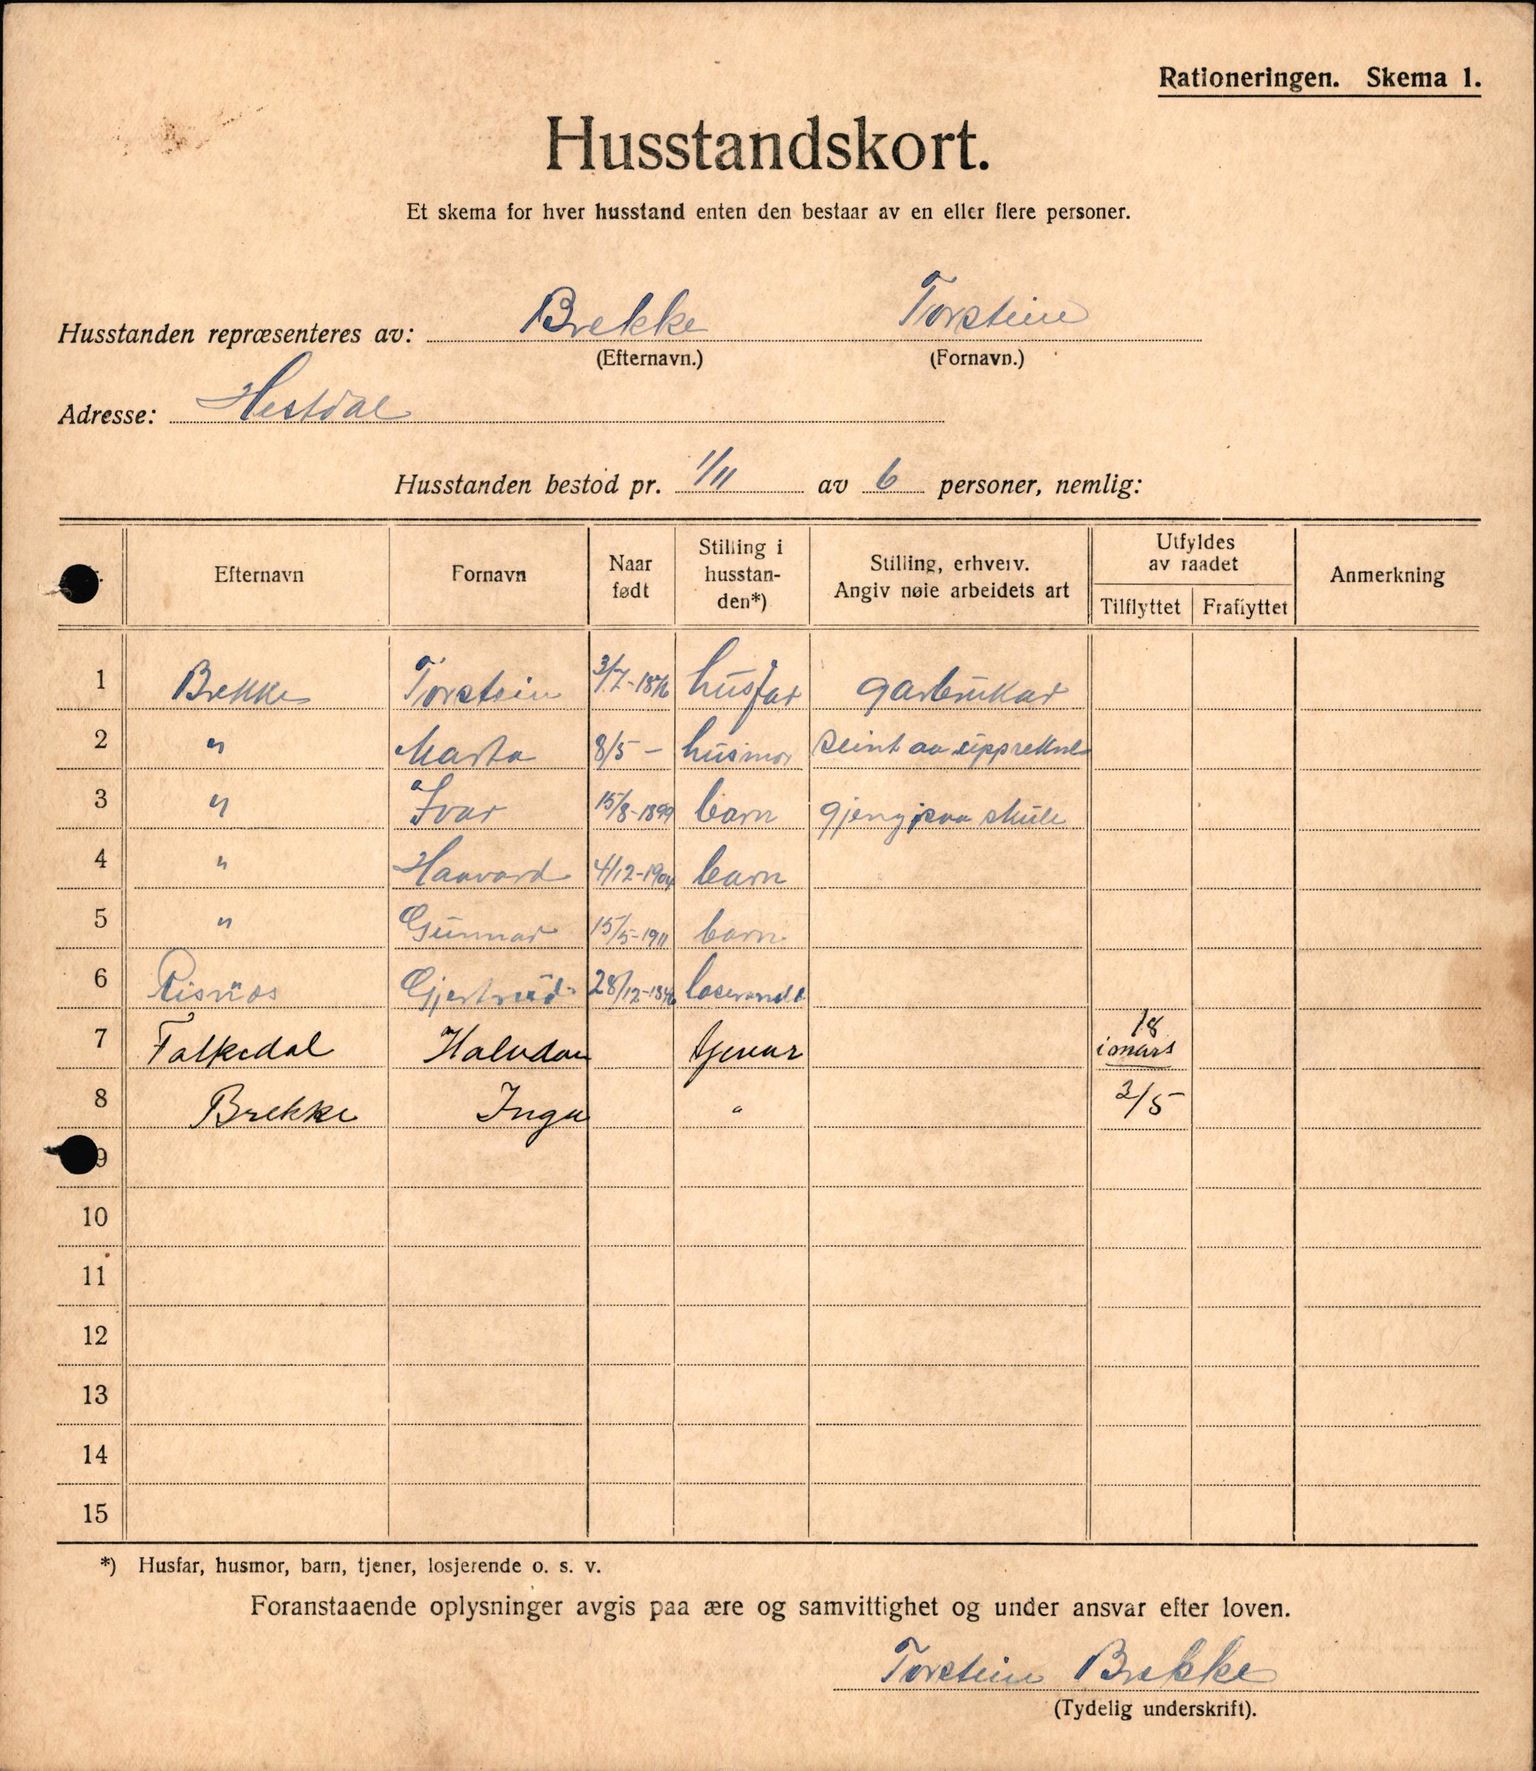 Rationeringen. Skema 1.
Husstandskort.
Et skema for hver husstand enten den bestaar av en eller flere personer.
Husstanden repræsenteres av: Brekke Torstein
(Efternavn.) (Fornavn.)
Adresse: Hestdal
Husstanden bestod pr. 1/11 av 6 personer, nemlig:
Efternavn Fornavn Naar født Stilling i husstan-den*) Stilling, erhverv. Angiv nøie arbeidets art Utfyldes av raadet Tilflyttet Fraflyttet Anmerkning
1 Brekke Torstein 3/7-1876 husfar garbrukar
2 " Marta 8/5 - husmor
3 " Ivar 15/8-1899 barn gjeng paa skule
4 " Haavard 4/12-1904 barn
5 " Gunnar 15/5-1911 barn
6 Risnæs Gjertrud 28/12-1846
7 Falkedal Halvdan tjenar 18 i mars
8 Brekke Inga " 2/5
9
10
11
12
13
14
15
*) Husfar, husmor, barn, tjener, losjerende o. s. v.
Foranstaaende oplysninger avgis paa ære og samvittighet og under ansvar efter loven.
Torstein Brekke
(Tydelig underskrift).